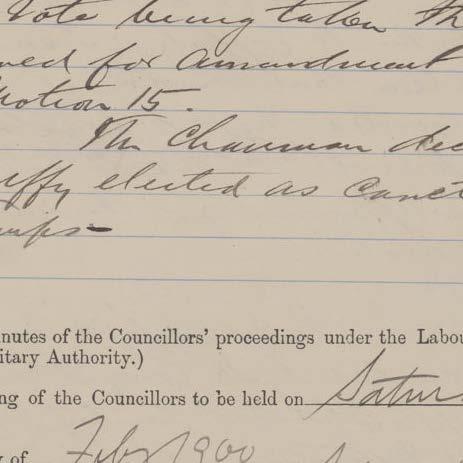 Vote being taken Th
ved for amendment
Motion 15.
The Chairman dec
uffy elected as
umps-
inutes of the Councillors' proceedings under the Labou
itary Authority.)
ng of the Councillors to be held on Satur
y of Feby 1900